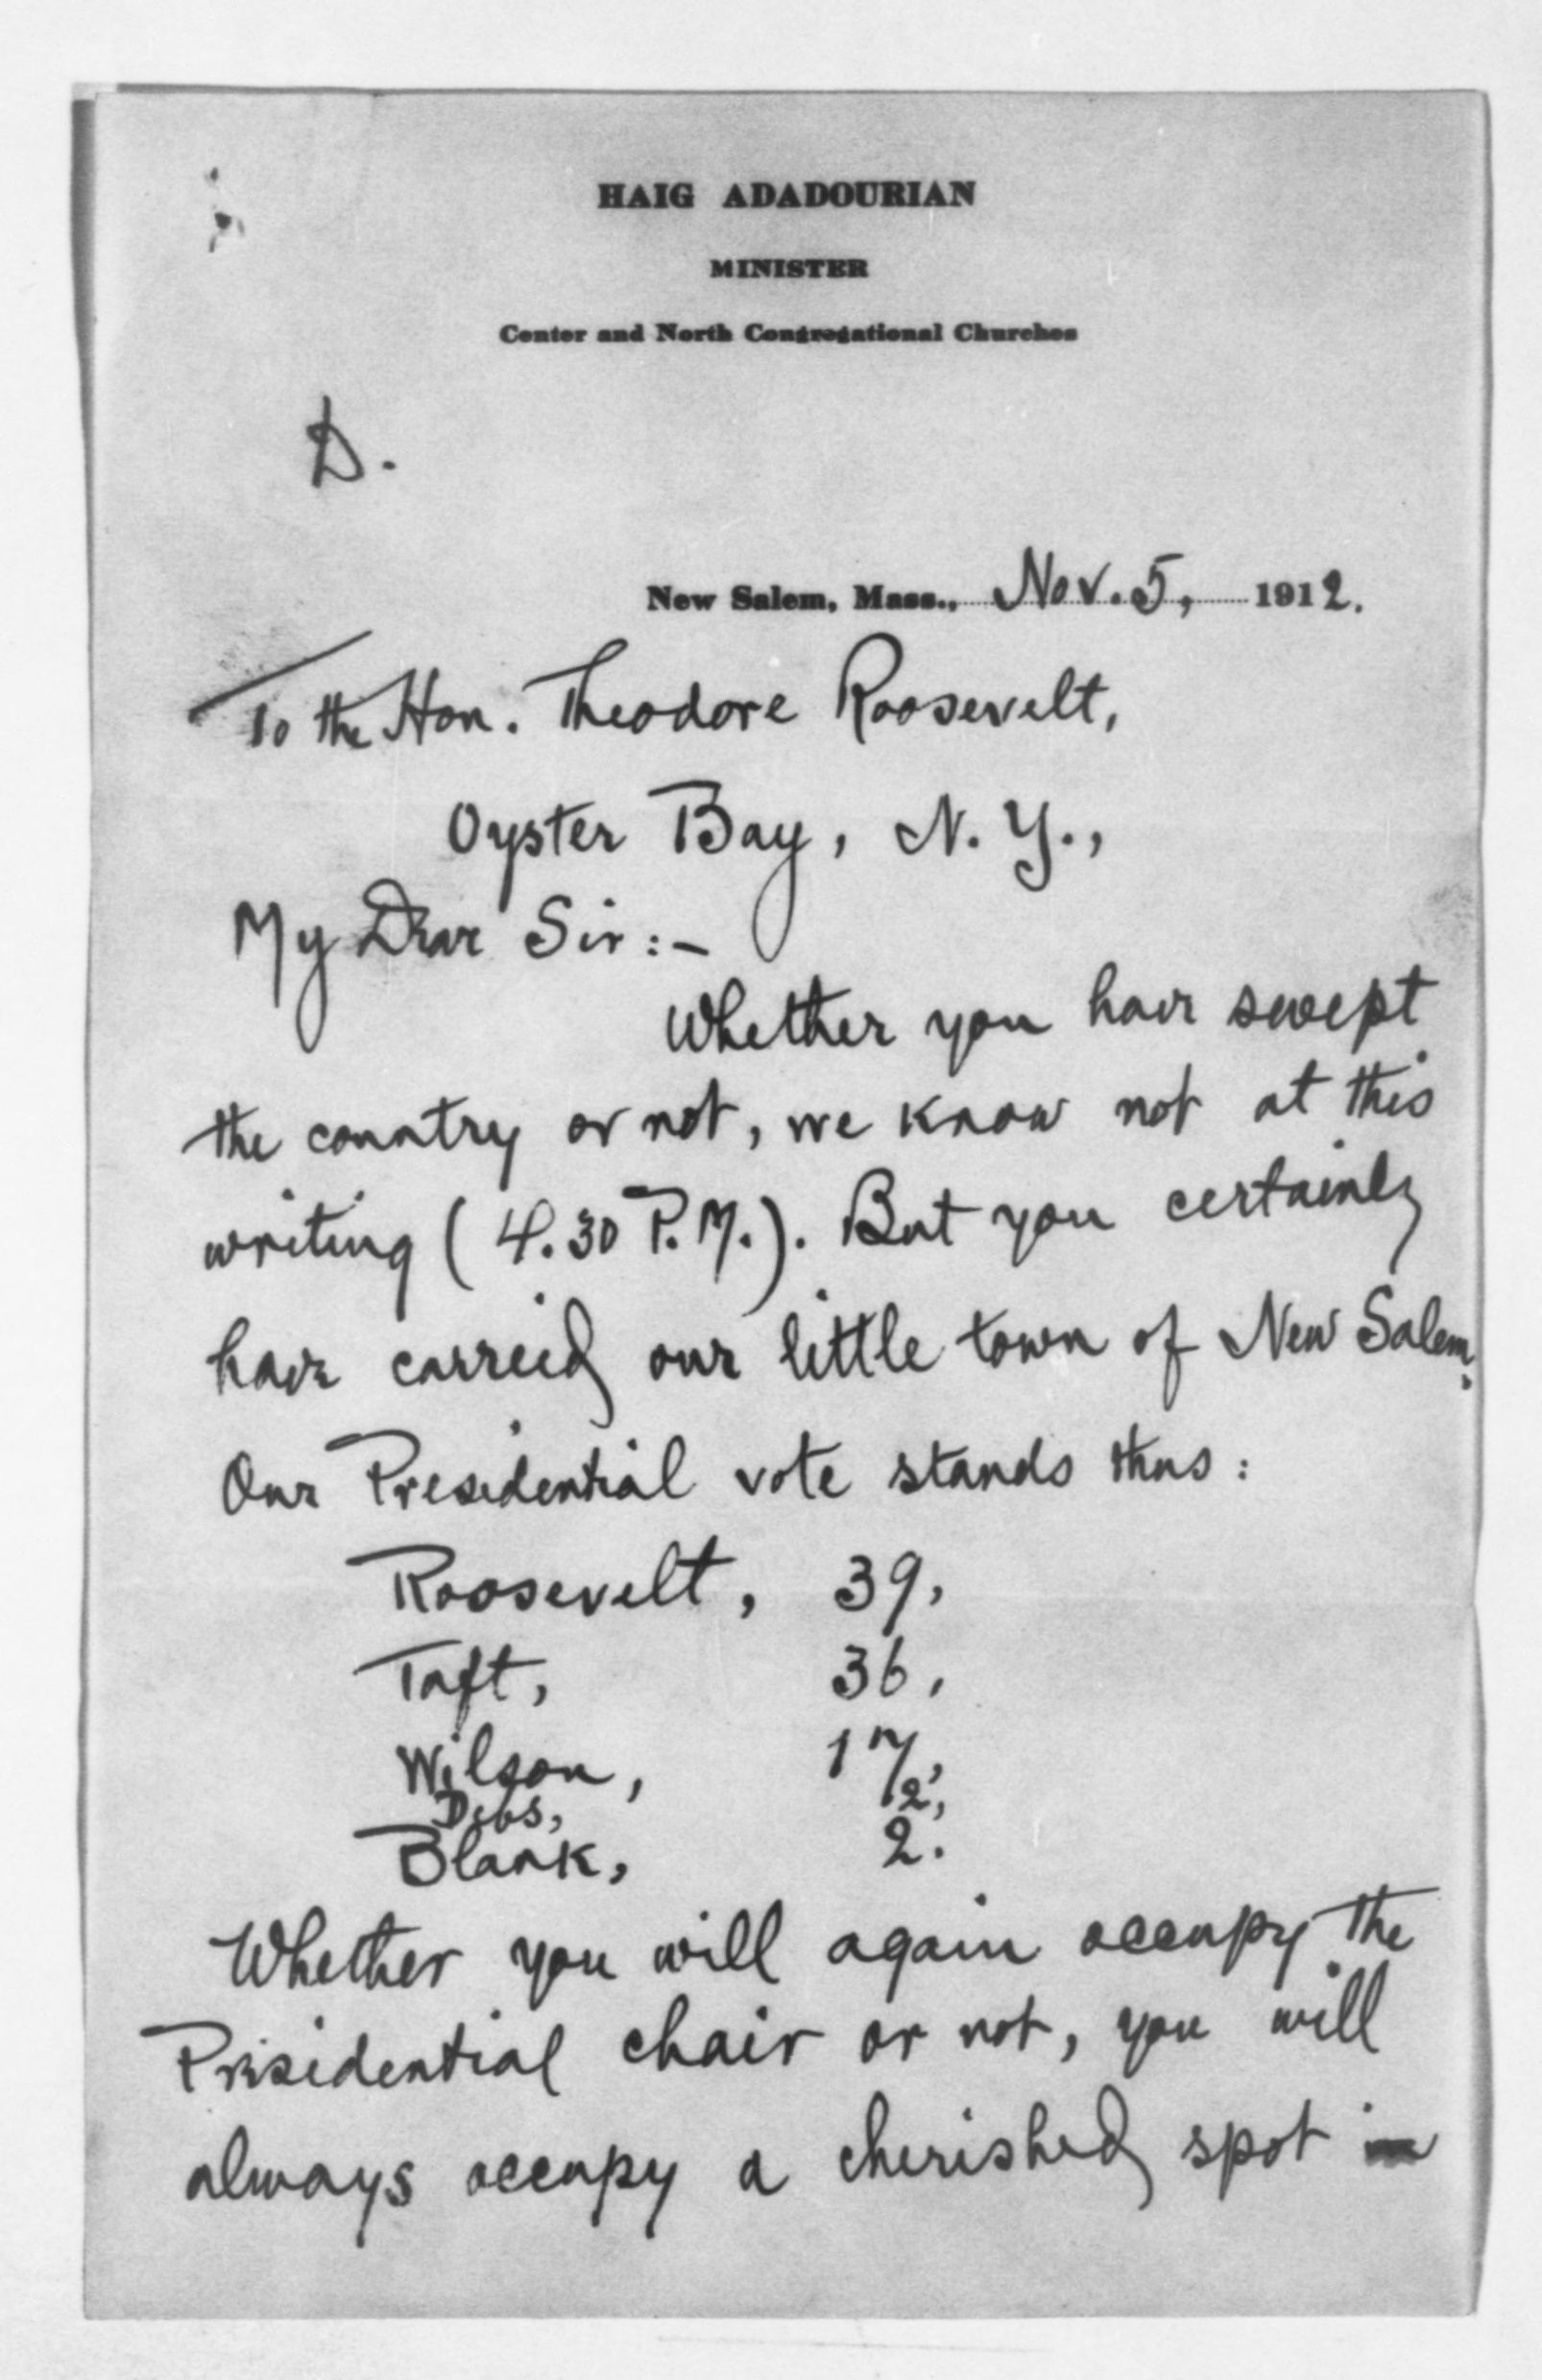 HAIG ADADOURIAN
MINISTER
Center and North Congregational Churches
D.
New Salem, Mass., Nov. 5, 1912.
To the Hon. Theodore Roosevelt,
Oyster Bay, N. Y.,
My Dear Sir:-
Whether you have swept
the country or not, we know not at this
writing (4.30 P.M.). But you certainly
have carried our little town of New Salem.
Our Presidential vote stands thus:
Roosevelt, 39,
Taft, 36,
Wilson, 17,
Debs, 2,
Blank, 2.
Whether you will again occupy the
Presidential chair or not, you will
always occupy a cherished spot in